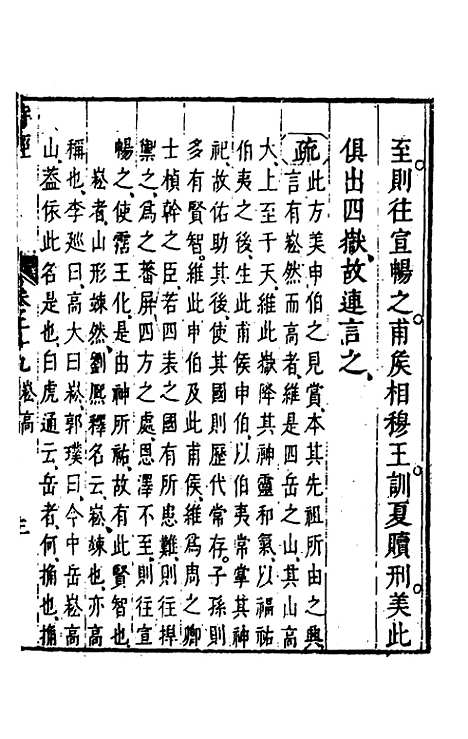 至則往宣暢之甫矦相穆王訓夏贖刑美此
俱出四嶽故連言之
疏此方美申伯之見賞本其先祖所由之興
言有崧然而高者維是四岳之山其山高
大上至于天維此嶽降其神靈和氣以福祐
伯夷之後生此甫侯申伯以伯夷常掌其神
祀故佑助其後使其國則歷代常存子孫則
多有賢智維此申伯及此甫侯維爲周之卿
士楨幹之臣若四表之國有所患難則往捍
禦之爲之蕃屏四方之處恩澤不至則往宣
暢之使霑王化是由神所祐故有此賢智也
崧者山形竦然劉熈釋名云崧竦也亦高
稱也李廵曰高大曰崧郭璞曰今中岳崧高
山葢依此名是也白虎通云岳者何捔也捔
詩經 卷之十九 崧高 三